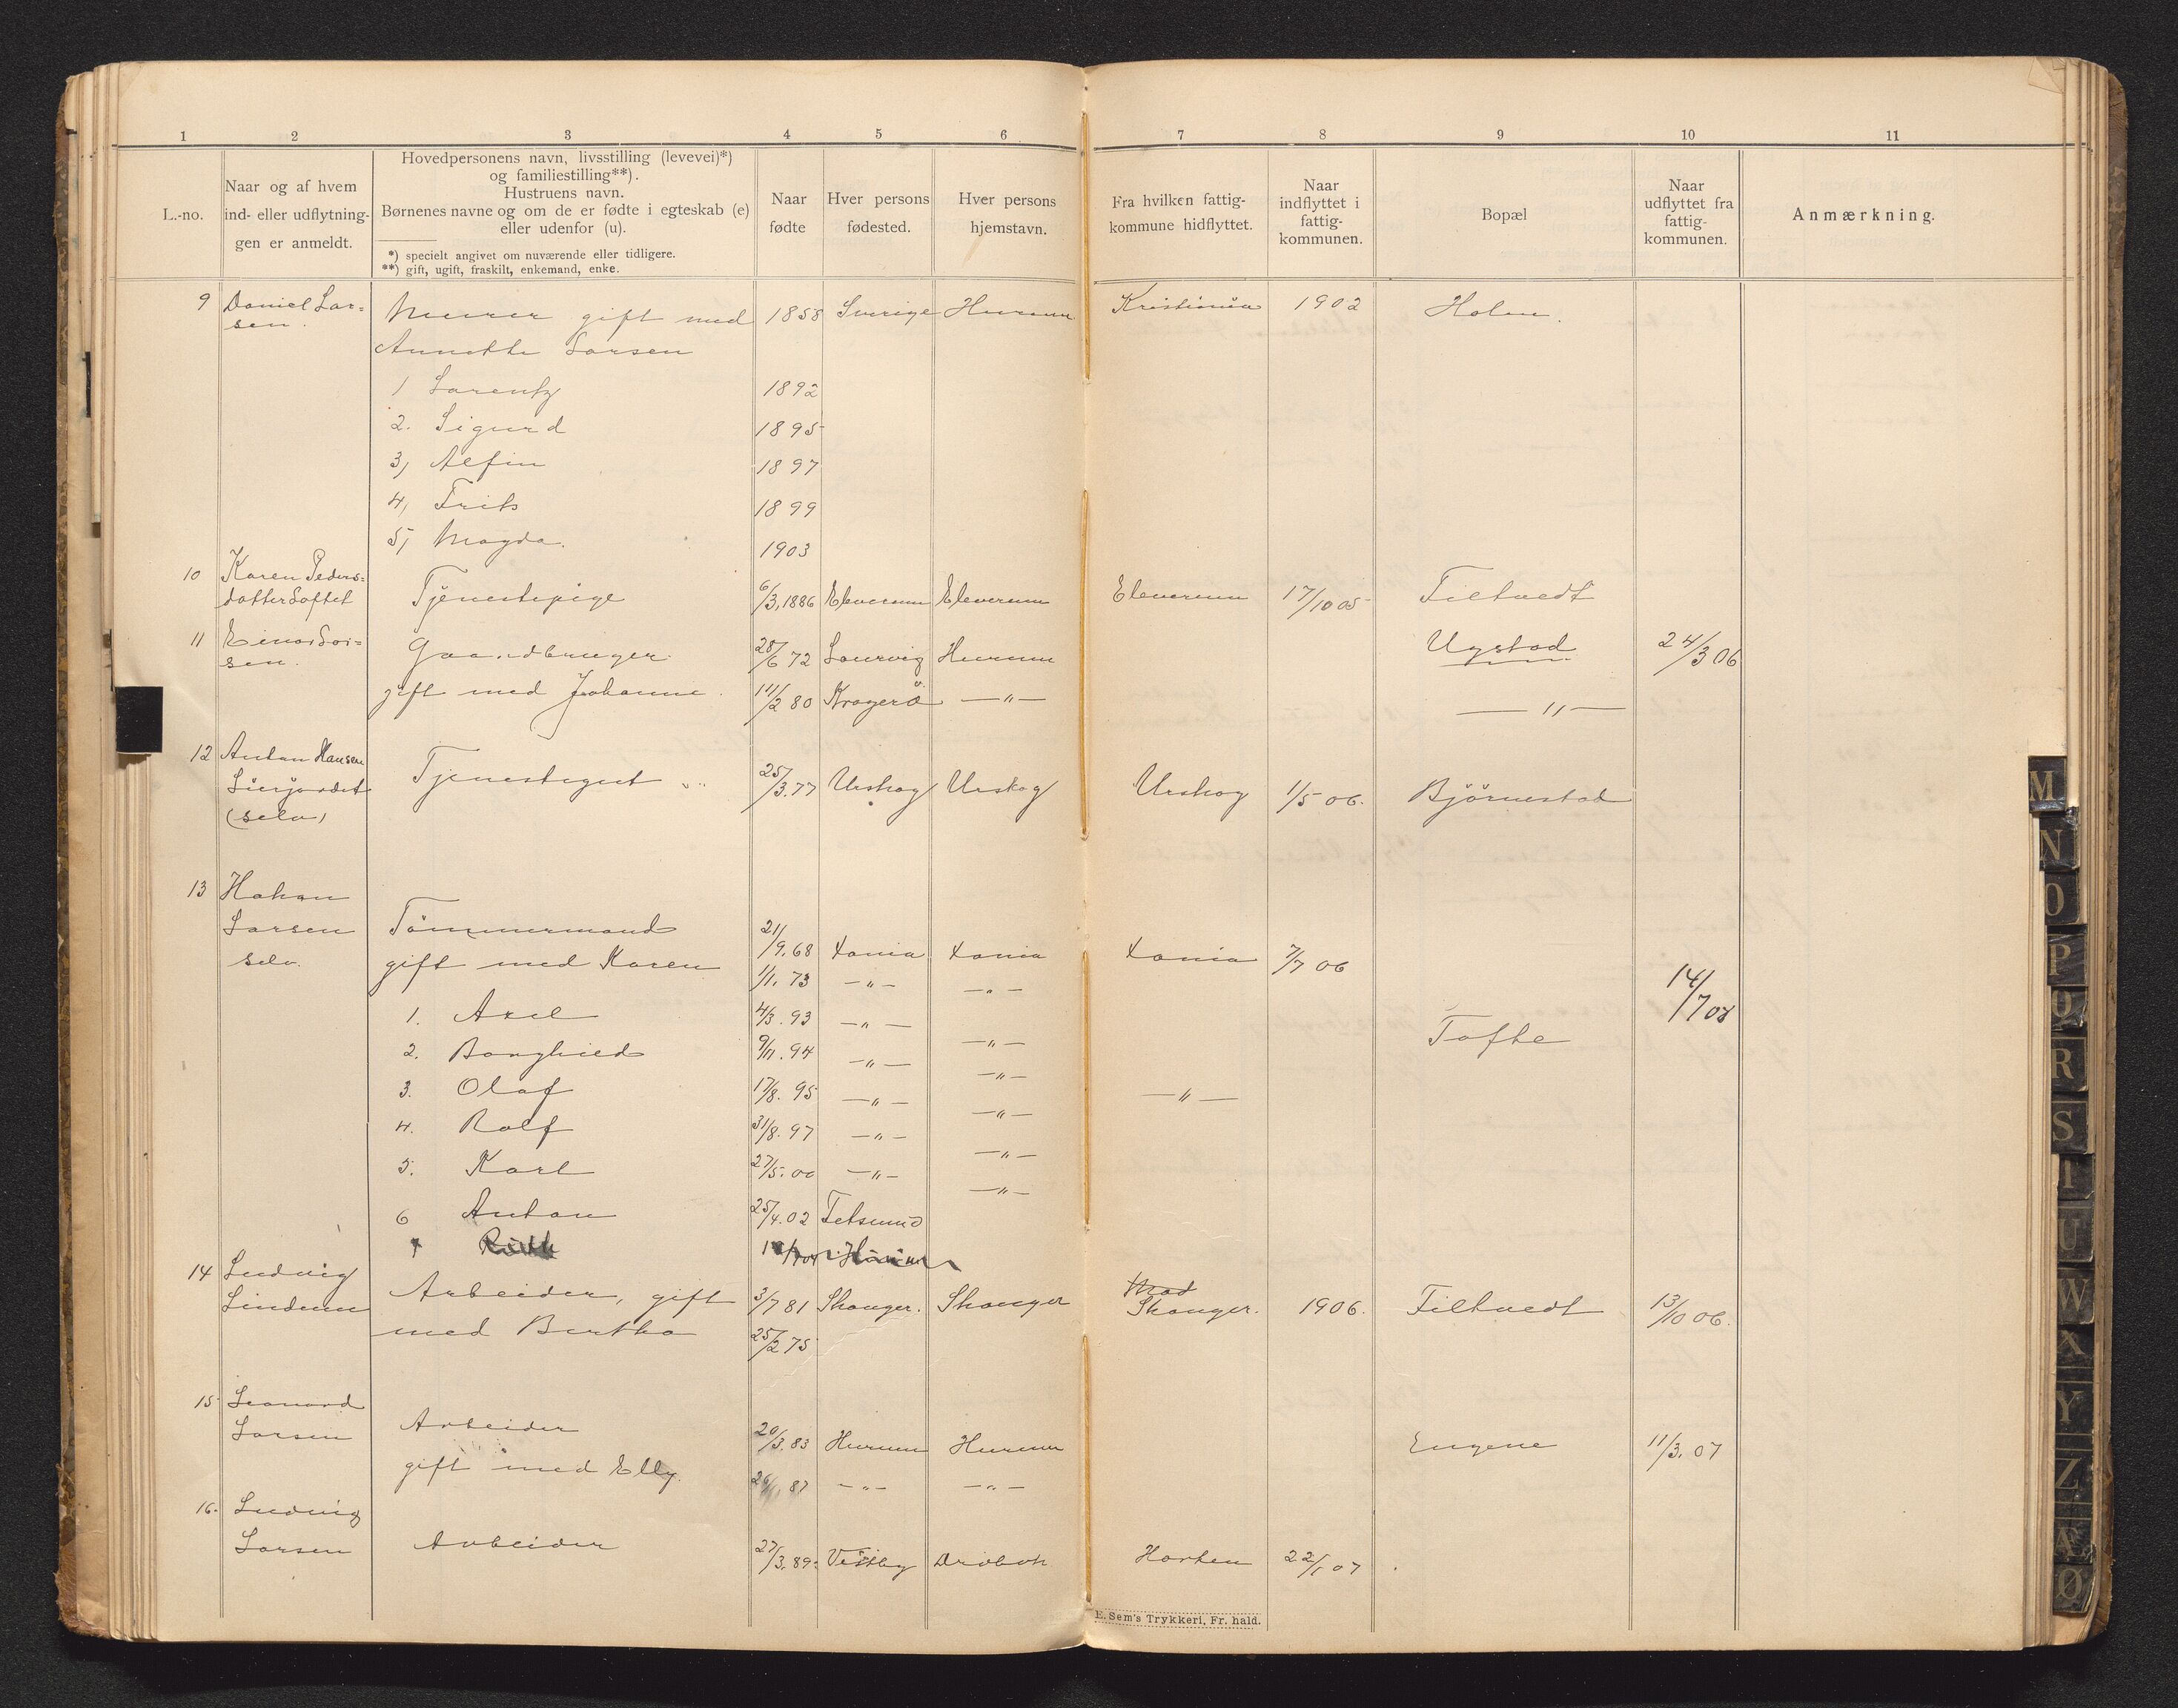 1 2 3 4 5 6 7 8 9 10 11
L.-no.
Naar og af hvem
ind- eller udflytnin-
gen er anmeldt.
Hovedpersonens navn, livsstilling (levevei)*)
og familiestilling**).
Hustruens navn.
Børnenes navne og om de er fødte i egteskab (e)
eller udenfor (u).
*) specielt angivet om nuværende eller tidligere.
**) gift, ugift, fraskilt, enkemand, enke.
Naar
fødte
Hver persons
fødested.
Hver persons
hjemstavn.
Fra hvilken fattig-
kommune hidflyttet.
Naar
indflyttet i
fattig-
kommunen.
Bopæl
Naar
udflyttet fra
fattig-
kommunen.
Anmærkning.
9 Daniel Lar= Murer gift med 1858 Sverige Hurum Kristiania 1902 Holen.
sen.
Annette Larsen
1 Larentz 1892
2. Sigurd 1895
3, Alfin 1897
4, Frits 1899
5, Magda. 1903
10 Karen Peders=
datter Loftet Tjenestepige 6/3, 1886 Elverum Elverum Elverum 17/10 05 Filtvedt
11 Einar Lar= Gaardbruger 28/6 72 Laurvig Hurum Ugstad 24/3 06
sen.
gift med Johanne. 11/2 80 Kragerö —"— —"—
12 Anton Hansen
Lierjordet Tjenestegut 25/3.77 Urskog Urskog Urskog 1/5 06. Björnestad
(selv)
13 Hakon
Larsen Tömmermand 21/9.68 Xania Xania Xania 7/7 06
selv. gift med Karen 1/1. 73 —"— —"— 14/7 08
1. Axel 4/3. 93 —"— —"— Tofte
2. Borghild 9/11. 94 —"— —"—
3. Olaf 17/8. 95 —"— —"— —"—
4. Rolf 31/8. 97 —"— —"—
5. Karl 27/5. 00 —"— —"—
6 Anton 25/4. 02 Fetsund
7 Ruth Hurum
14 Ludvig
Lindum Arbeider, gift 3/7 81 Skauger. Skauger Skauger. 1906. Filtvedt 13/10 06.
med Bertha 25/2 75
15 Leonard
Larsen Arbeider 20/3. 83 Hurum Hurum Engene 11/3. 07
gift med Elly. 87 —"— —"—
16. Ludvig
Larsen Arbeider 27/3. 89. Vestby Dröbak Horten 22/1 07
E. Sem's Trykkeri, Fr. hald.
M
N
O
P
Q
R
S
T
U
W
X
Y
Z
Æ
Ø